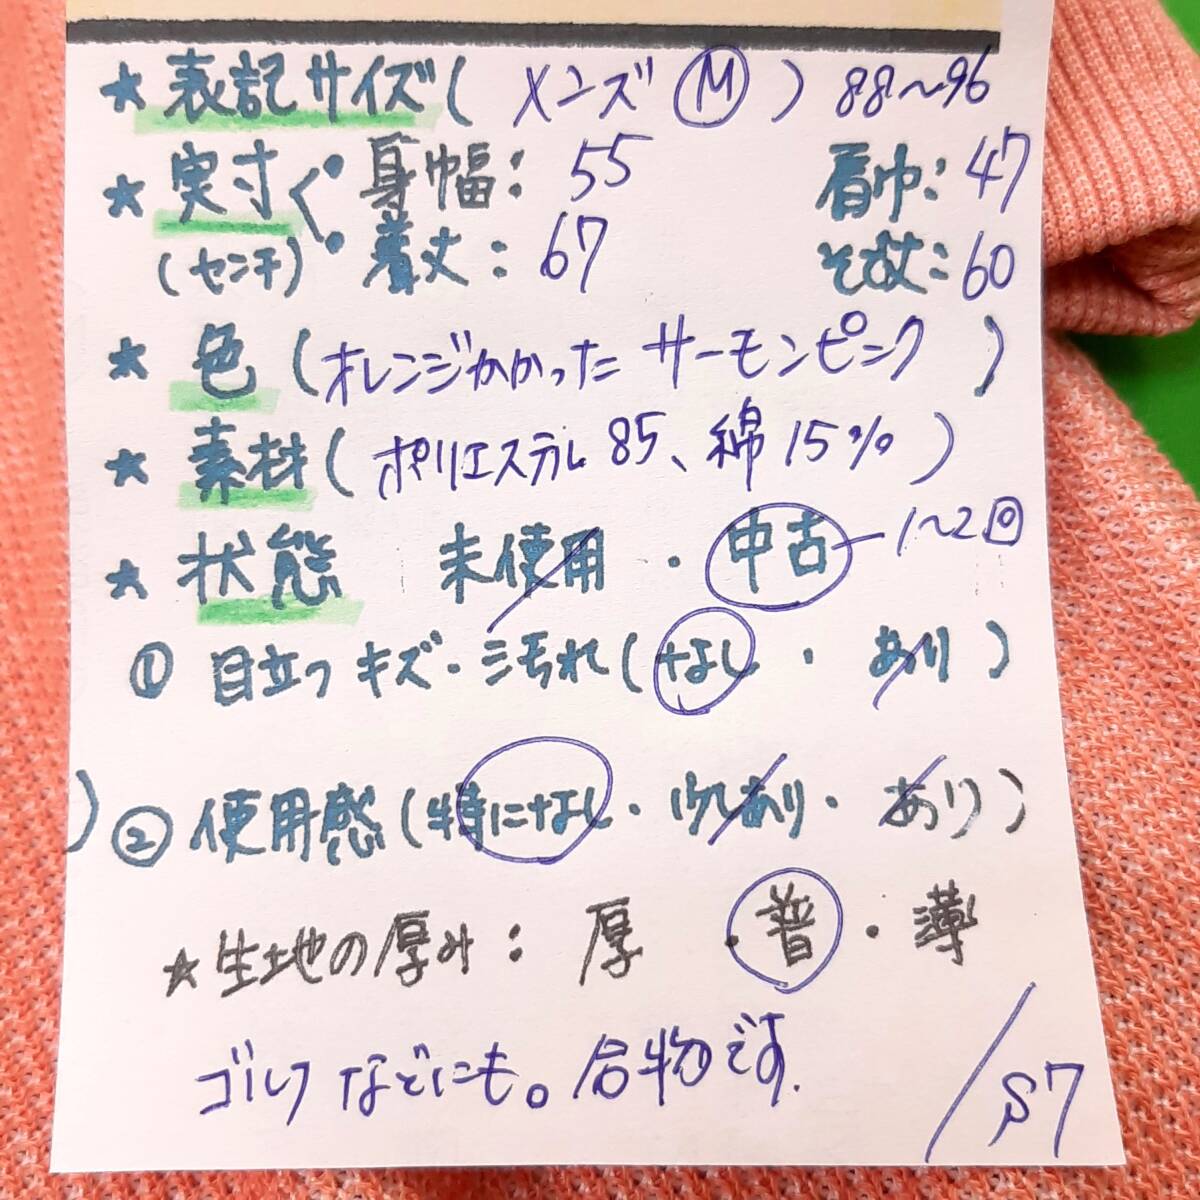 ★ 表記サイズ( メンズ Ⓜ ) 88〜96
★ 実寸 ・身幅: 55 肩巾: 47
(センチ) ・着丈: 67 そで丈: 60
★ 色 (オレンジかかった サーモンピンク )
★ 素材 (ポリエステル 85、綿 15% )
★ 状態 未使用 ・ 中古 ー 1〜2回
① 目立つ キズ・汚れ ( なし ・ あり )
) ② 使用感 (特になし・少しあり・ あり )
★生地の厚み: 厚 ・ 普 ・ 薄
ゴルフ などにも。合物です.
/S7